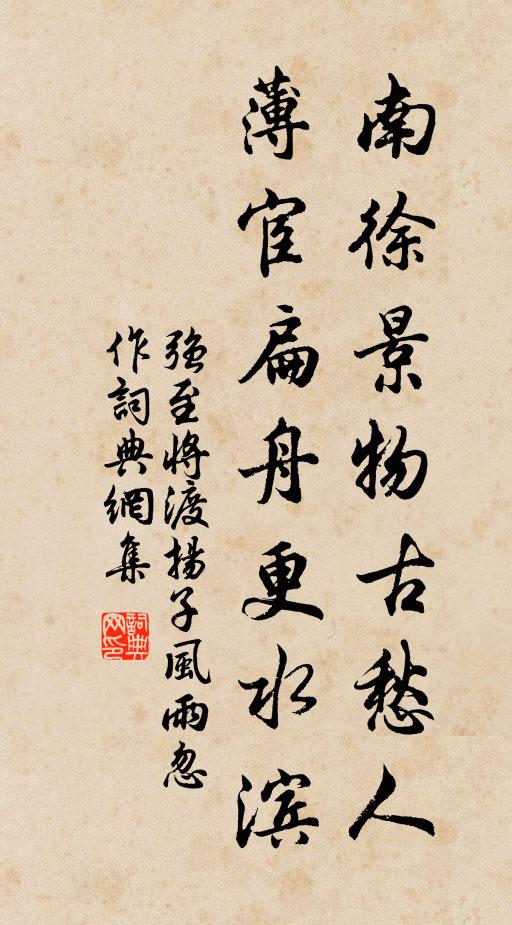 南徐景物古愁人
薄宦扁舟更水滨
強至將渡揚子風雨忽
作詞典網集
詞典网印